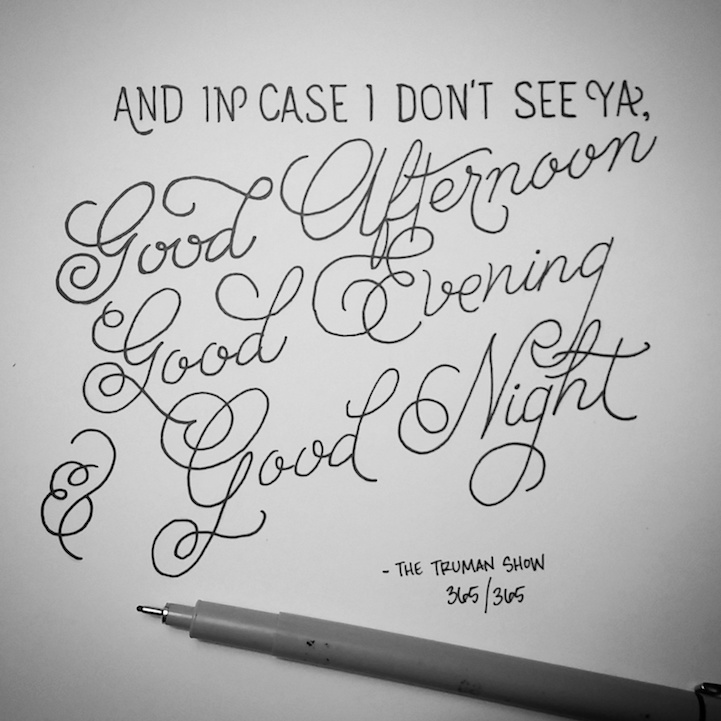 AND IN CASE I DON'T SEE YA,
Good Afternoon
Good Evening
& Good Night
- THE TRUMAN SHOW
365/365